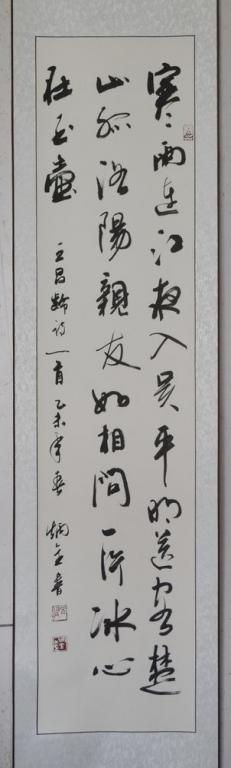 寒雨连江夜入吴平明送客楚
山孤洛陽親友如相問一片冰心
在玉壶
王昌龄诗一首乙未年春炳金書